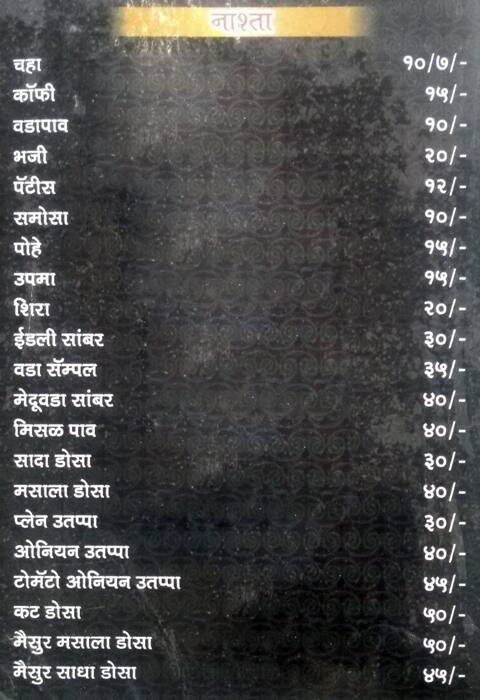 नाश्ता
चहा १०/७/-
कॉफी १५/-
वडापाव १०/-
भजी २०/-
पॅटीस १२/-
समोसा १०/-
पोहे १५/-
उपमा १५/-
शिरा २०/-
ईडली सांबर ३०/-
वडा सॅम्पल ३५/-
मेदूवडा सांबर ४०/-
मिसळ पाव ४०/-
सादा डोसा ३०/-
मसाला डोसा ४०/-
प्लेन उतप्पा ३०/-
ओनियन उतप्पा ४०/-
टोमॅटो ओनियन उतप्पा ४५/-
कट डोसा ५०/-
मैसुर मसाला डोसा ५०/-
मैसुर साधा डोसा ४५/-